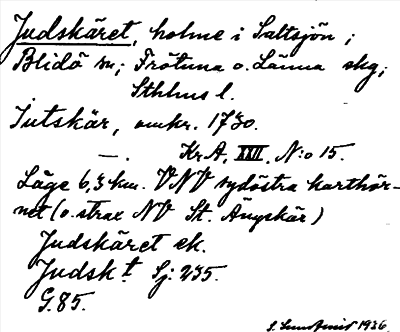 Judskäret, holme i Saltsjön;
Blidö sn; Frötuna o. Länna skg;
Sthlms l.
Jutskär, omkr. 1730.
—. Kr.A. XXII. N:o 15.
Läge 6,3 km. VNV sydöstra karthör-
net (o. strax NV St. Ängskär)
Judskäret ek.
Judsk:t Sj: 235.
G. 85.
1936